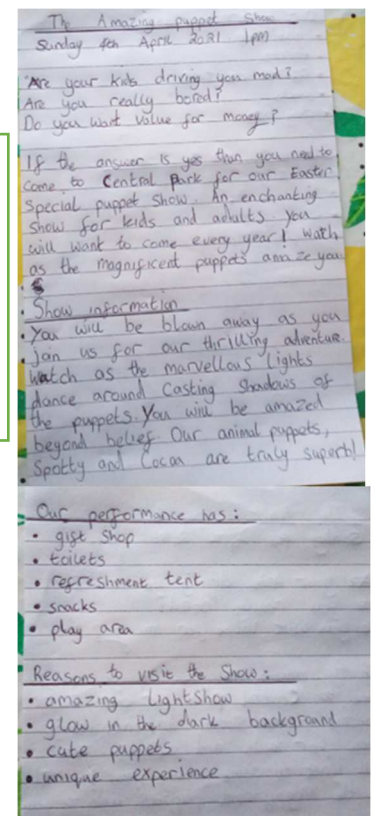 The Amazing puppet Show
Sunday 4th April 2021 1pm
Are your kids driving you mad?
Are you really bored?
Do you want value for money?
If the answer is yes than you need to
come to Central Park for our Easter
Special puppet show. An enchanting
Show for kids and adults you
will want to come every year! Watch
as the magnificent puppets amaze you
Show information
• You will be blown away as you
join us for our thrilling adventure.
Watch as the marvellous lights
dance around casting shadows of
the puppets. You will be amazed
beyond belief Our animal puppets,
Spotty and Cocoa are truly superb!
Our performance has:
• gift shop
• toilets
• refreshment tent
• snacks
• play area
Reasons to visit the Show:
• amazing Lightshow
• glow in the dark background
• cute puppets
• unique experience